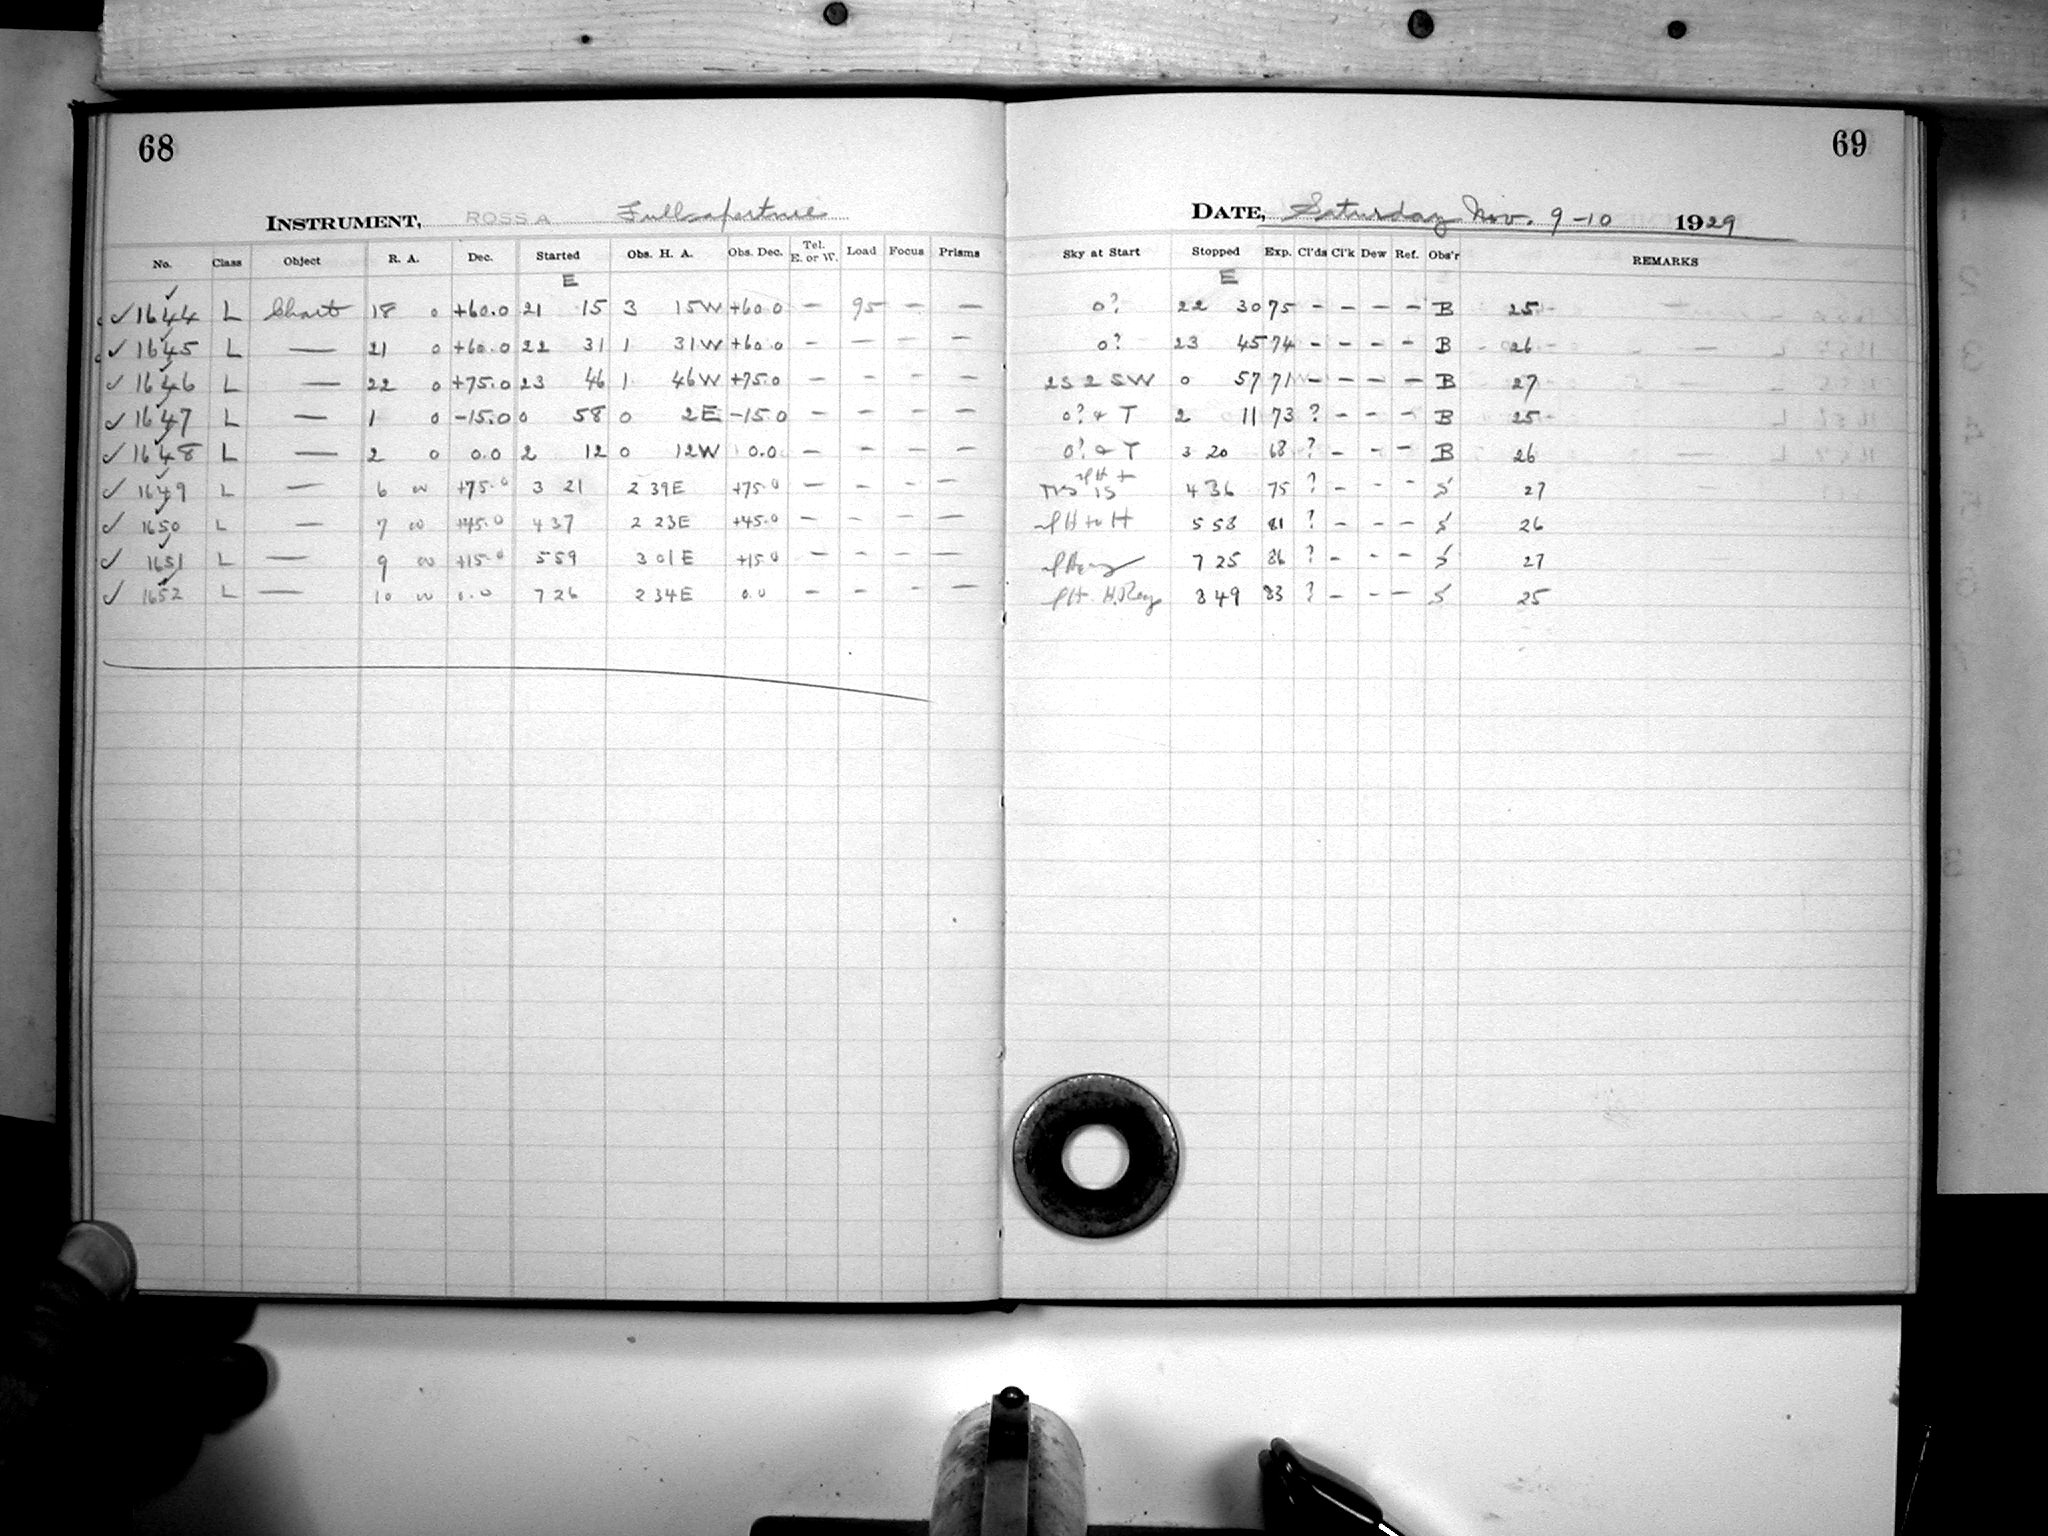 68
INSTRUMENT, ROSS A Full aperture
No. Class Object R. A. Dec. Started Obs. H. A. Obs. Dec. Tel. E. or W. Load Focus Prisms
E
✓ 1644 L Chart 18 0 +60.0 21 15 3 15W +60.0 — 95 — —
✓ 1645 L — 21 0 +60.0 22 31 1 31W +60.0 — — — —
✓ 1646 L — 22 0 +75.0 23 46 1 46W +75.0 — — — —
✓ 1647 L — 1 0 -15.0 0 58 0 2E -15.0 — — — —
✓ 1648 L — 2 0 0.0 2 12 0 12W 0.0 — — — —
✓ 1649 L — 6 00 +75.0 3 21 2 39E +75.0 — — — —
✓ 1650 L — 7 00 +45.0 4 37 2 23E +45.0 — — — —
✓ 1651 L — 9 00 +15.0 5 59 3 01E +15.0 — — — —
✓ 1652 L — 10 00 0.0 7 26 2 34E 0.0 — — — —
69
DATE, Saturday Nov. 9-10 1929
Sky at Start Stopped Exp. Cl'ds Cl'k Dew Ref. Obs'r REMARKS
E
0? 22 30 75 — — — — B 25
0? 23 45 74 — — — — B 26
2S 2 SW 0 57 71 — — — — B 27
0? + T 2 11 73 ? — — — B 25
0? + T 3 20 68 ? — — — B 26
4 36 75 ? — — — S 27
H to H 5 58 81 ? — — — S 26
7 25 86 ? — — — S 27
8 49 83 ? — — — S 25